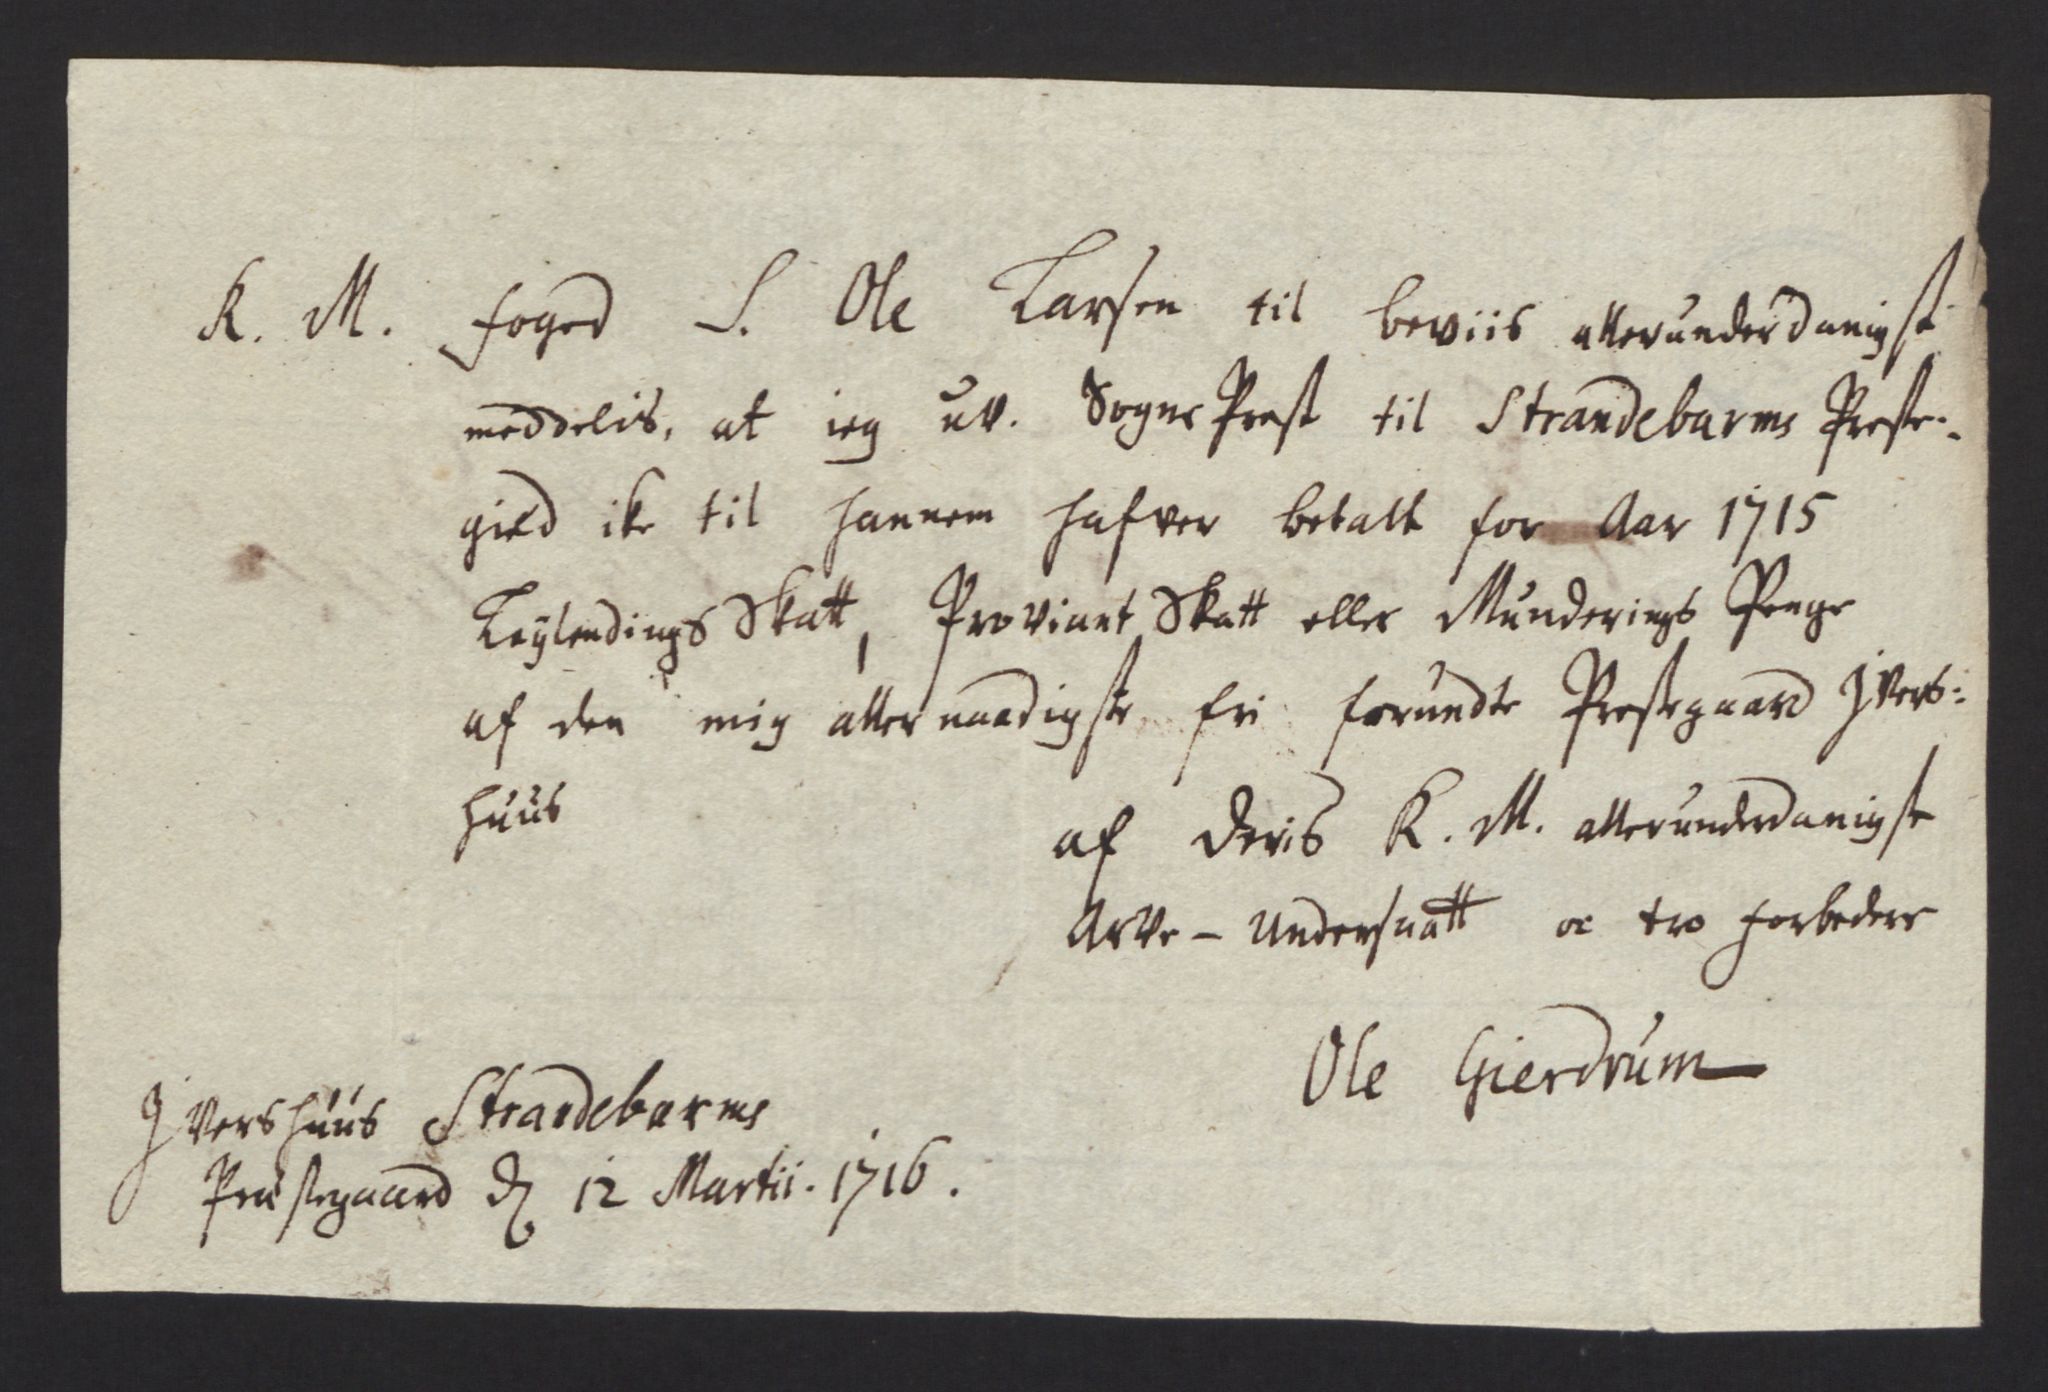 K. M. foged S. Ole Larsen til beviis allerunderdanigst
meddelis, at ieg uv. Sogne Prest til Strandebarms Preste-
gield ike til hannem hafver betalt for Aar 1715
Leylendings Skatt, Proviant Skatt eller Munderings Penge
af den mig allernaadigste fri forundte Prestegaard Jvers:
huus
af deris K. M. allerunderdanigste
Arve - Undersaatt oc tro forbedere
Ole Gierdrum
Jvershuus Strandebarms
Præstegaard d 12 Martii. 1716.